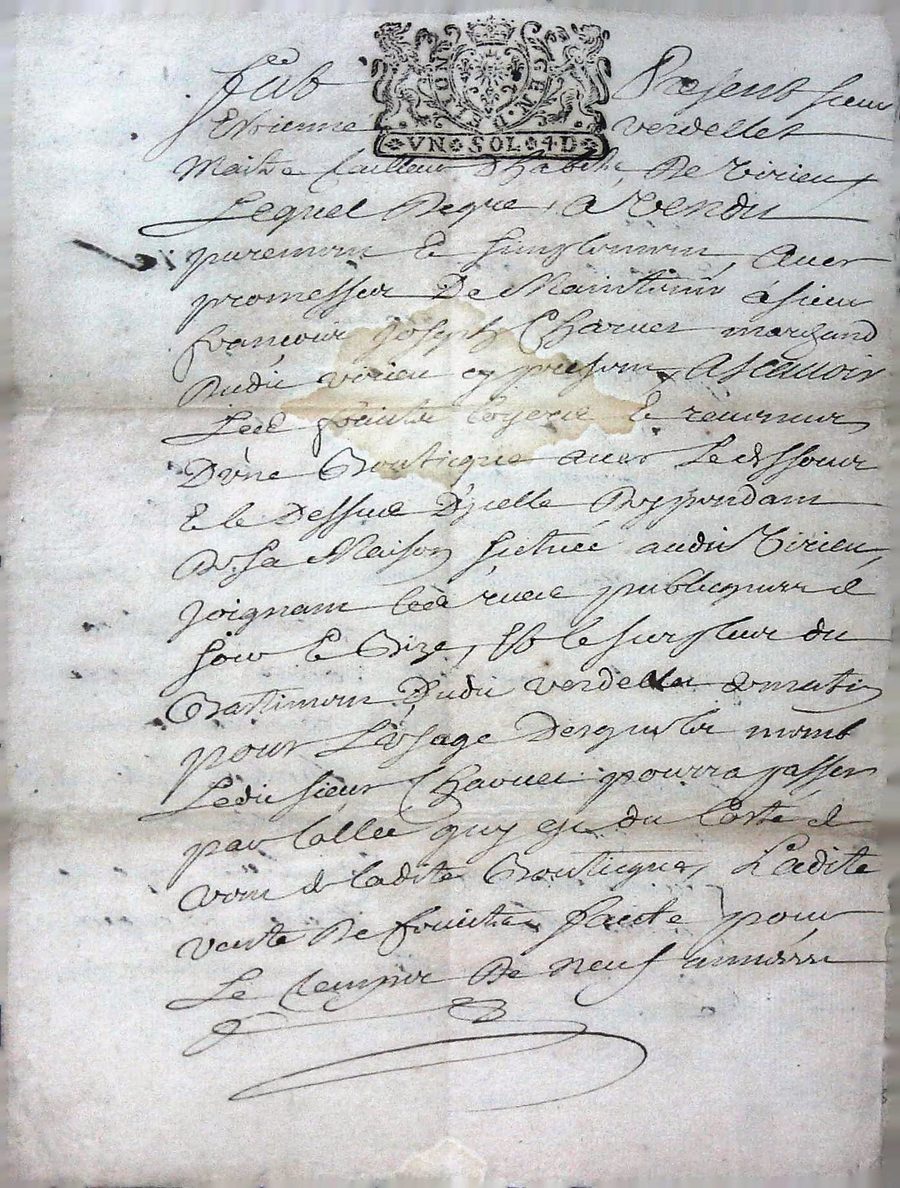 GEN · D · LYON
VN SOL 4D
Fut Present sieur
Estienne Verdellet
Maitre tailleur d'habits, de Virieu
Lequel de gre, a Vendu
purement et simplement, avec
promesse De Maintenir a sieur
françois Joseph Charvet marchand
dudit virieu cy present, Ascauoir
Les fruits loyers et revenus
D'une Boutique avec Le dessous
et le Dessus d'ycelle Deppendant
De sa Maison situee audit Virieu,
joignant les rues publiques de
soir et Bize, et le surplus du
Bastiment dudit verdellet
pour L'usage
Ledit sieur Charvet pourra passer
par l'allee quy est du Coste de
vent de ladite Boutique, Ladite
vente de fruits faite pour
Le temps De neuf années